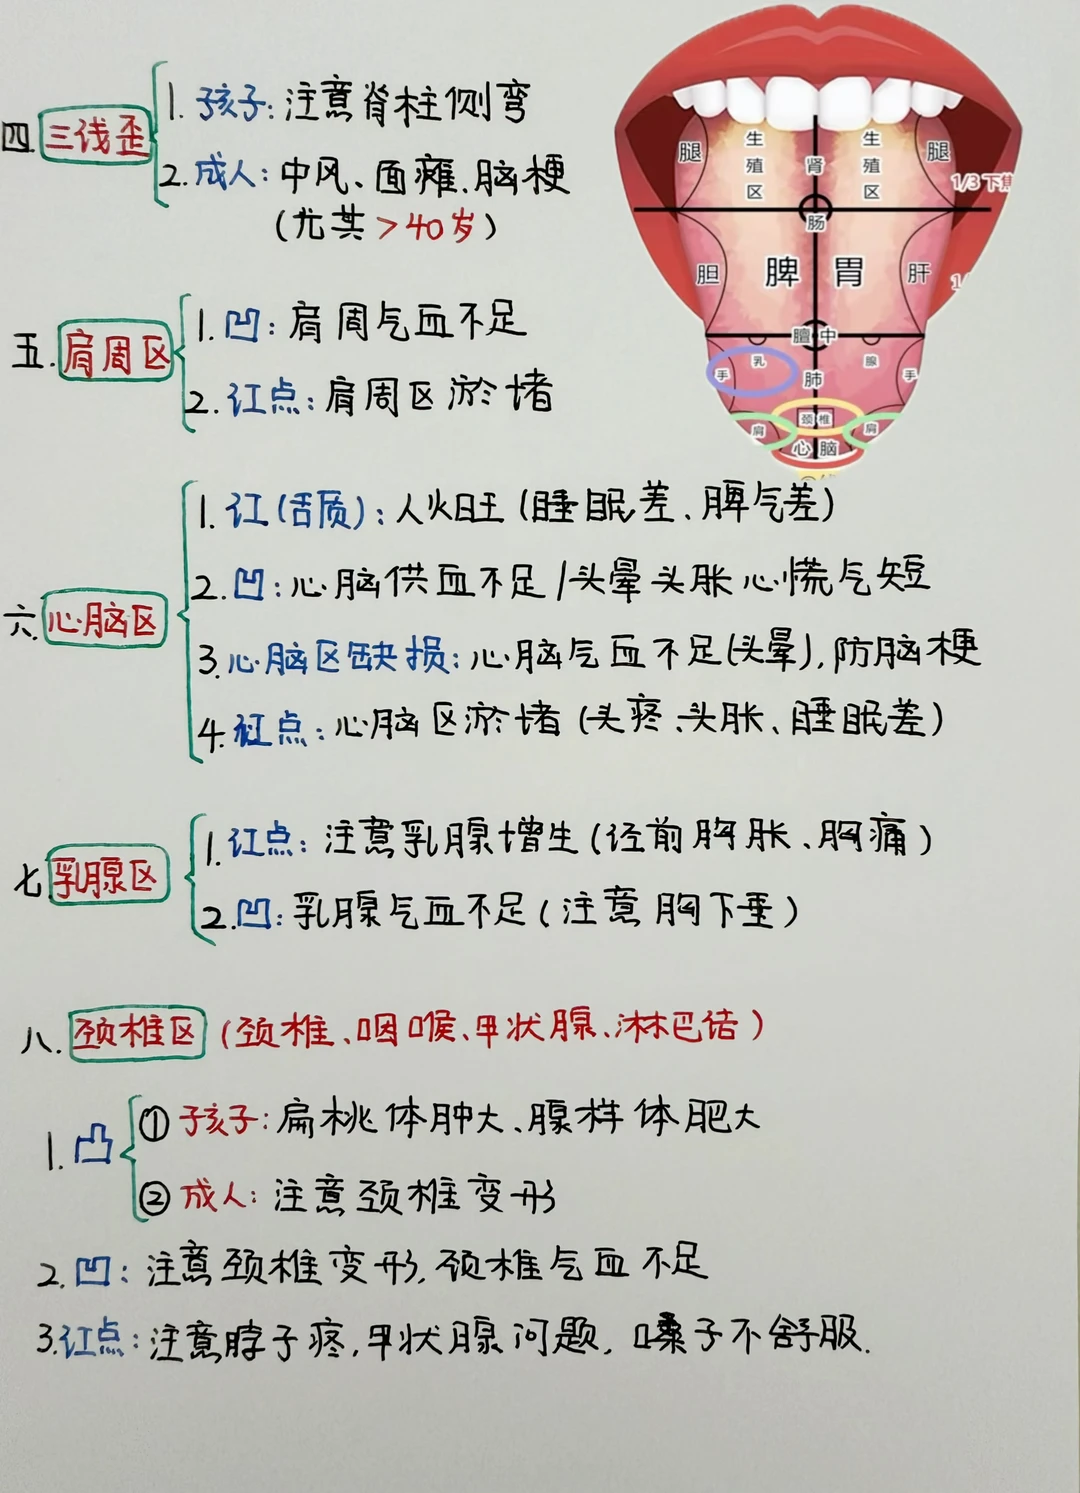 四. 三线歪
1. 孩子: 注意脊柱侧弯
2. 成人: 中风、面瘫、脑梗
(尤其 >40岁)
腿 生殖区 肾 生殖区 腿
1/3 下焦
肠
胆 脾 胃 肝
膻 中
手 乳 肺 腺 手
颈 椎
肩 肩
心 脑
五. 肩周区
1. 凹: 肩周气血不足
2. 红点: 肩周区淤堵
六. 心脑区
1. 红(舌质): 人火旺 (睡眠差、脾气差)
2. 凹: 心脑供血不足/头晕头胀心慌气短
3. 心脑区缺损: 心脑气血不足(头晕), 防脑梗
4. 红点: 心脑区淤堵 (头疼、头胀、睡眠差)
七. 乳腺区
1. 红点: 注意乳腺增生(经前胸胀、胸痛)
2. 凹: 乳腺气血不足(注意胸下垂)
八. 颈椎区 (颈椎、咽喉、甲状腺、淋巴结)
1. 凸
① 孩子: 扁桃体肿大、腺样体肥大
② 成人: 注意颈椎变形
2. 凹: 注意颈椎变形, 颈椎气血不足
3. 红点: 注意脖子疼, 甲状腺问题, 嗓子不舒服.